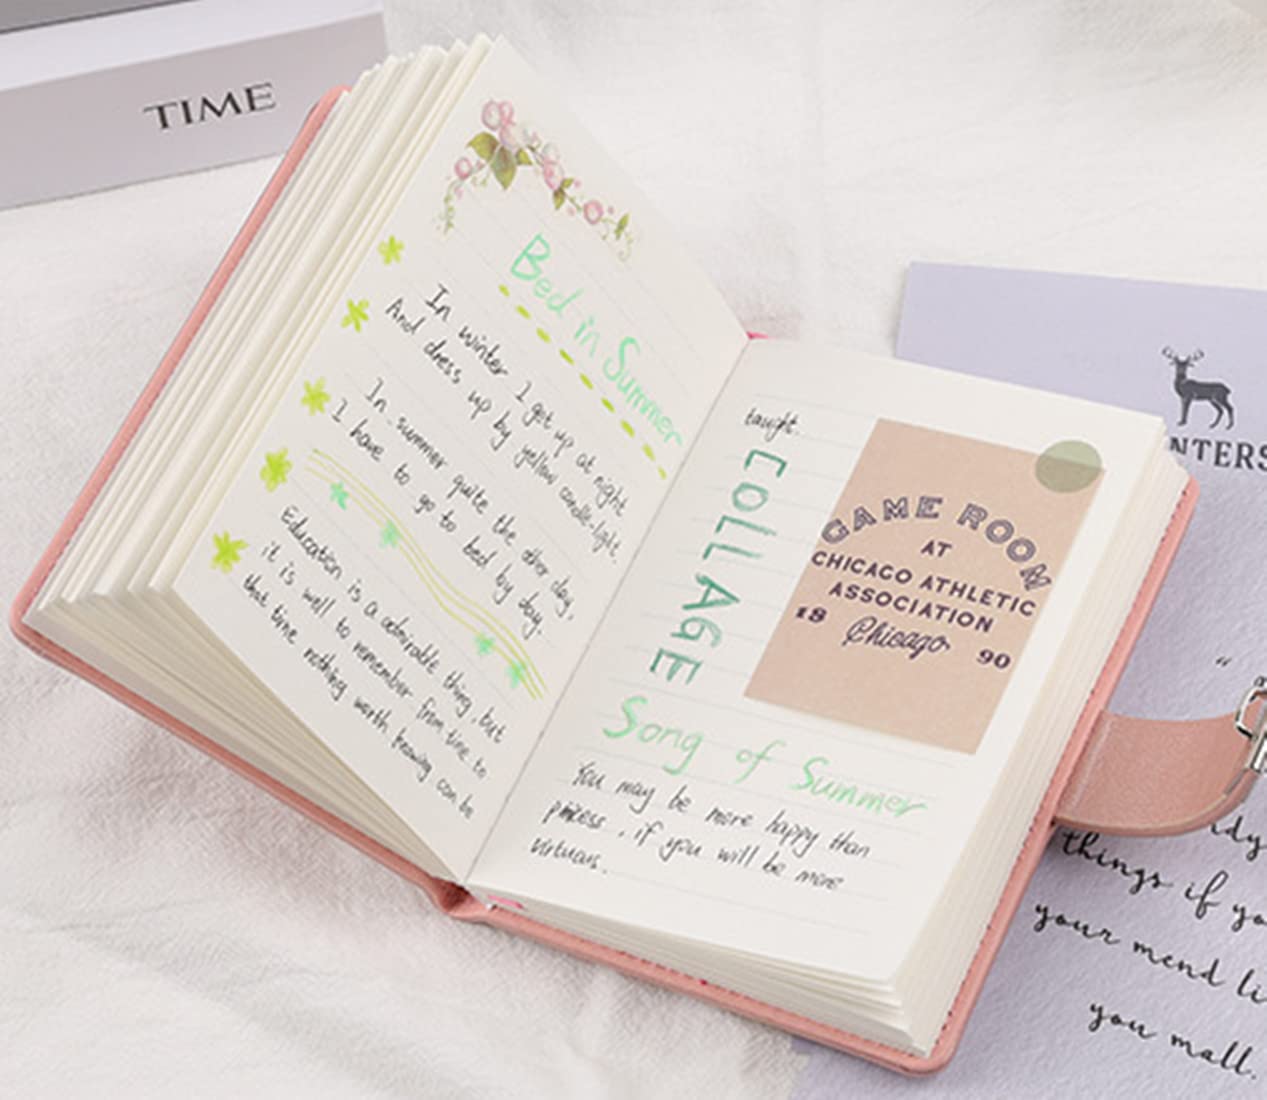 TIME
Bed in Summer
In winter I get up at night
And dress up by yellow candle-light.
In summer quite the other day,
I have to go to bed by day.
Education is a admirable thing, but
it is well to remember from time to
that time nothing worth knowing can be
taught.
COllAGE
GAME ROOM
AT
CHICAGO ATHLETIC
ASSOCIATION
18 Chicago 90
Song of Summer
You may be more happy than
, if you will be more
virtuous.
NTERS
“
things if yo
your mend li
you mall.